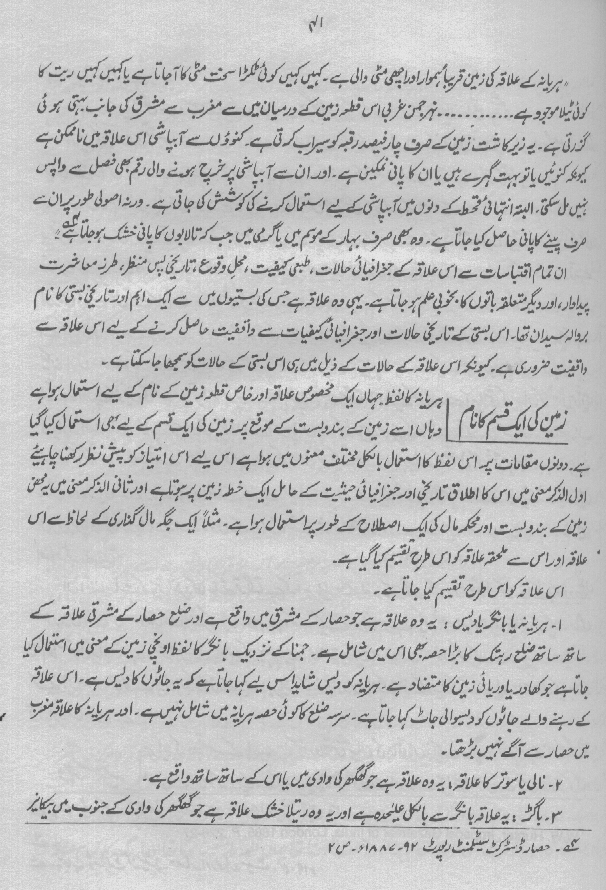 ۴۱
"ہریانہ کے علاقہ کی زمین قریباً ہموار اور اچھی مٹی والی ہے۔ کہیں کہیں کوئی ٹکڑا سخت مٹی کا آجاتا ہے یا کہیں کہیں ریت کا
کوئی ٹیلا موجود ہے............ نہر جمن غربی اس قطعہ زمین کے درمیان میں سے مغرب سے مشرق کی جانب بہتی ہوئی
گزرتی ہے۔ یہ زیر کاشت زمین کے صرف چار فیصد رقبہ کو سیراب کرتی ہے۔ کنوؤں سے آبپاشی اس علاقہ میں ناممکن ہے
کیونکہ کنوئیں یا تو بہت گہرے ہیں یا ان کا پانی نمکین ہے۔ اور ان سے آبپاشی پر خرچ ہونے والی رقم بھی فصل سے واپس
نہیں مل سکتی۔ البتہ انتہائی قحط کے دنوں میں آبپاشی کے لیے استعمال کرنے کی کوشش کی جاتی ہے۔ ورنہ اصولی طور پر ان سے
صرف پینے کا پانی حاصل کیا جاتا ہے۔ وہ بھی صرف بہار کے موسم میں یا گرمی میں جب کہ تالابوں کا پانی خشک ہو جاتا ہے"
ان تمام اقتباسات سے اس علاقہ کے جغرافیائی حالات، طبعی کیفیت، محل وقوع، تاریخی پس منظر، طرز معاشرت
پیداوار، اور دیگر متعلقہ باتوں کا بخوبی علم ہو جاتا ہے۔ یہی وہ علاقہ ہے جس کی بستیوں میں سے ایک اہم اور تاریخی بستی کا نام
بروالہ سیدان تھا۔ اس بستی کے تاریخی حالات اور جغرافیائی کیفیات سے واقفیت حاصل کرنے کے لیے اس علاقہ سے
واقفیت ضروری ہے۔ کیونکہ اس علاقہ کے حالات کے ذیل میں ہی اس بستی کے حالات کو سمجھا جا سکتا ہے۔
زمین کی ایک قسم کا نام
ہریانہ کا لفظ جہاں ایک مخصوص علاقہ اور خاص قطعہ زمین کے نام کے لیے استعمال ہوا ہے
وہاں اسے زمین کے بندوبست کے موقع پر زمین کی ایک قسم کے لیے بھی استعمال کیا گیا
ہے۔ دونوں مقامات پر اس لفظ کا استعمال بالکل مختلف معنوں میں ہوا ہے اس لیے اس امتیاز کو پیش نظر رکھنا چاہیئے
اول الذکر معنی میں اس کا اطلاق تاریخی اور جغرافیائی حیثیت کے حامل ایک خطہ زمین پر ہوتا ہے اور ثانی الذکر معنی میں یہ محض
زمین کے بندوبست اور محکمہ مال کی ایک اصطلاح کے طور پر استعمال ہوا ہے۔ مثلاً ایک جگہ مال گذاری کے لحاظ سے اس
علاقہ اور اس سے ملحقہ علاقہ کو اس طرح تقسیم کیا گیا ہے۔
اس علاقہ کو اس طرح تقسیم کیا جاتا ہے۔
۱۔ ہریانہ یا بانگر یا دیس : یہ وہ علاقہ ہے جو حصار کے مشرق میں واقع ہے اور ضلع حصار کے مشرقی علاقہ کے
ساتھ ساتھ ضلع رہتک کا بڑا حصہ بھی اس میں شامل ہے۔ جمنا کے نزدیک بانگر کا لفظ اونچی زمین کے معنی میں استعمال کیا
جاتا ہے جو کھادر یا دریائی زمین کا متضاد ہے۔ ہریانہ کو دیس شاید اس لیے کہا جاتا ہے کہ یہ جاٹوں کا دیس ہے۔ اس علاقہ
کے رہنے والے جاٹوں کو دیسوالی جاٹ کہا جاتا ہے۔ سرسہ ضلع کا کوئی حصہ ہریانہ میں شامل نہیں ہے۔ اور ہریانہ کا علاقہ مغرب
میں حصار سے آگے نہیں بڑھتا۔
۲۔ نالی یا سوتر کا علاقہ : یہ وہ علاقہ ہے جو گھگھر کی وادی میں یا اس کے ساتھ ساتھ واقع ہے۔
۳۔ باگڑ : یہ علاقہ بانگر سے بالکل علیحدہ ہے اور یہ وہ ریتلا خشک علاقہ ہے جو گھگھر کی وادی کے جنوب میں بیکانیر
حصار ڈسٹرکٹ سیٹلمنٹ رپورٹ ۹۲-۱۸۸۷ء۔ ص ۲